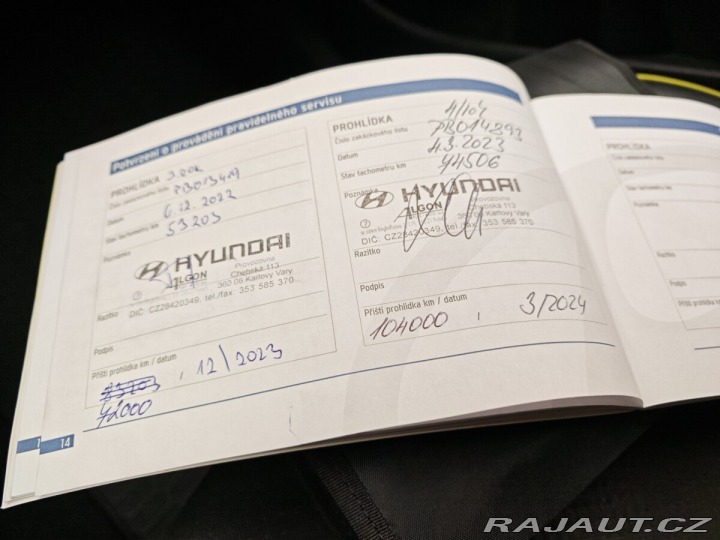 Potvrzení o provádění pravidelného servisu
PROHLÍDKA 3.ROK
Číslo zakázkového listu
Datum 6.12.2022
Stav tachometru km 53203
Poznámka
HYUNDAI
ALGON Provozovna
Chebská 113
360 06 Karlovy Vary
DIČ: CZ28420349, tel./fax: 353 585 370
Razítko
Podpis
Příští prohlídka km / datum
72000 , 12/2023
14
PROHLÍDKA
Číslo zakázkového listu
Datum 4.3.2023
Stav tachometru km 74506
Poznámka
HYUNDAI
ALGON Provozovna
Chebská 113
360 06 Karlovy Vary
DIČ: CZ28420349, tel./fax: 353 585 370
Razítko
Podpis
Příští prohlídka km / datum
104000 , 3/2024
PROHLÍDKA
Číslo zakázkového listu
Datum
Stav tachometru km
Poznámka
Razítko
Podpis
RAJAUT.CZ